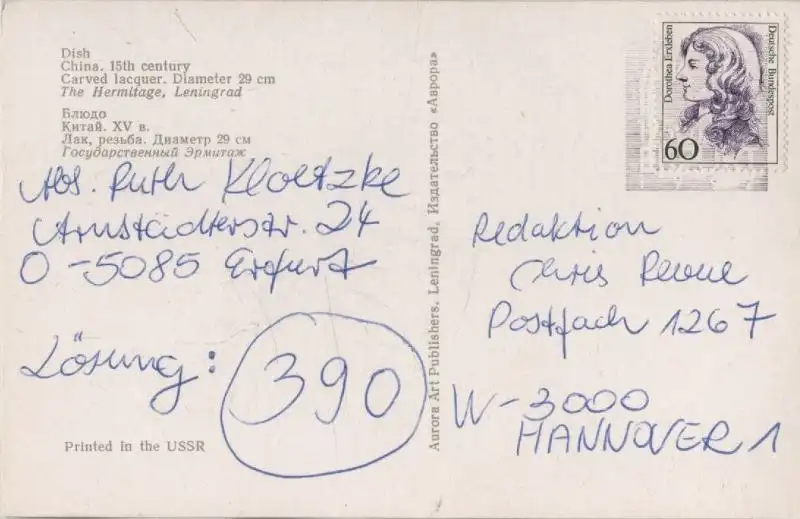 Dish
China. 15th century
Carved lacquer. Diameter 29 cm
The Hermitage, Leningrad
Блюдо
Китай. XV в.
Лак, резьба. Диаметр 29 см
Государственный Эрмитаж
Abs. Ruth Kloetzke
Arnstädterstr. 24
O-5085 Erfurt
Lösung: 390
Printed in the USSR
Aurora Art Publishers. Leningrad. Издательство «Аврора»
Dorothea Erxleben
Deutsche Bundespost
60
Redaktion
Chris Revue
Postfach 1267
W-3000
HANNOVER 1